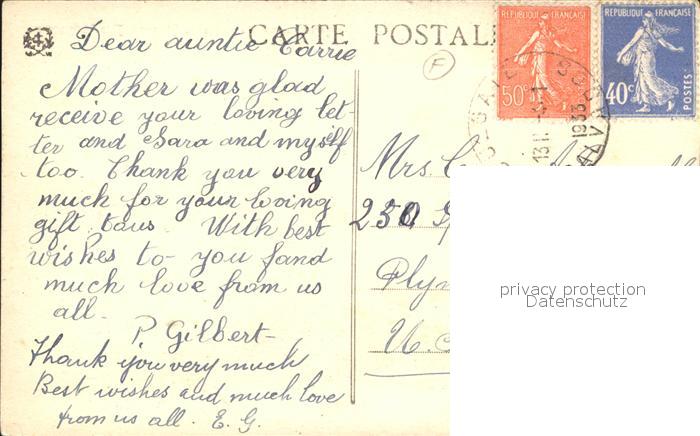 CARTE POSTAL
Dear auntie Carrie
Mother was glad
receive your loving let-
ter and Sara and myself
too. Thank you very
much for your loving
gift to us. With best
wishes to- you fand
much love from us
all.
P Gilbert-
Thank you very much
Best wishes and much love
from us all. E. G.
F
REPUBLIQUE FRANÇAISE
50c
REPUBLIQUE FRANÇAISE
40c
POSTES
1933
Mrs. C
230
Plym
U.S
privacy protection
Datenschutz